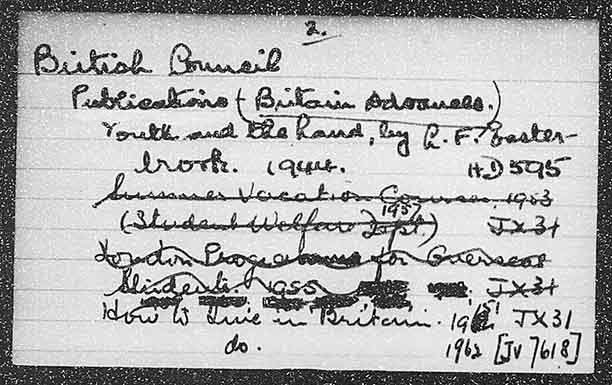 2.
British Council
Publications (Britain Advances.)
Youth and the Land, by L. F. Easter-
brook. 1944. HD595
Summer Vacation Courses. 1953
1957
(Student Welfare Dept.) JX31
London Programme for Overseas
Students. 1955 JX31
How to Live in Britain. JX31
do. 1962 [JV7618]